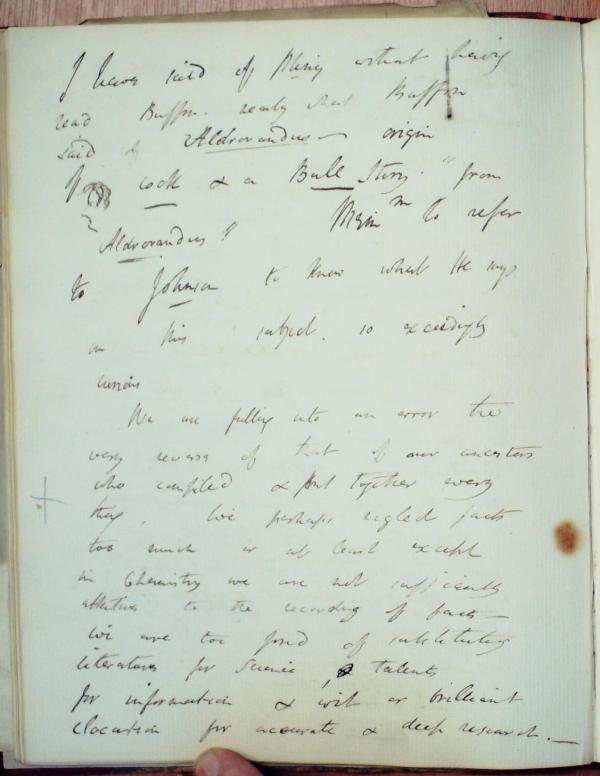 I have said of Pliny without having
read Buffon. nearly what Buffon
said of Aldrovandus — origin
of cock & a Bull Story. " from
Aldrovandus? Mem to refer
to Johnson to know what He says
on this subject. so exceedingly
curious
We are falling into an error the
very reverse of that of our ancestors
who compiled & put together every
thing, We perhaps neglect facts
too much or at least except
in Chemistry we are not sufficiently
attentive to the recording of facts —
we are too fond of substituting
literature for Science, talents
for information & wit or brilliant
elocution for accurate & deep research. —